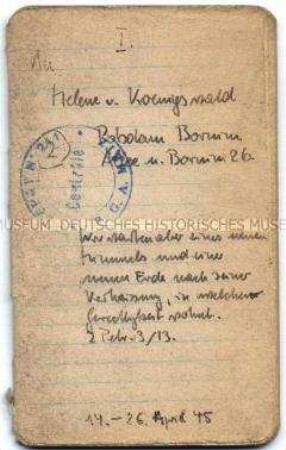 I.
An
Helene v. Koenigswald
Potsdam Bornim
Allee n. Bornim 26a
DEPOT N° 231
Centrale
P.G.A. MATH
MUSEUM DEUTSCHES HISTORISCHES MUSE
Wir warten aber eines neuen
Himmels und einer
neuen Erde nach seiner
Verheissung, in welchen
Gerechtigkeit wohnt.
2 Petr. 3/13.
14.–26. April 45